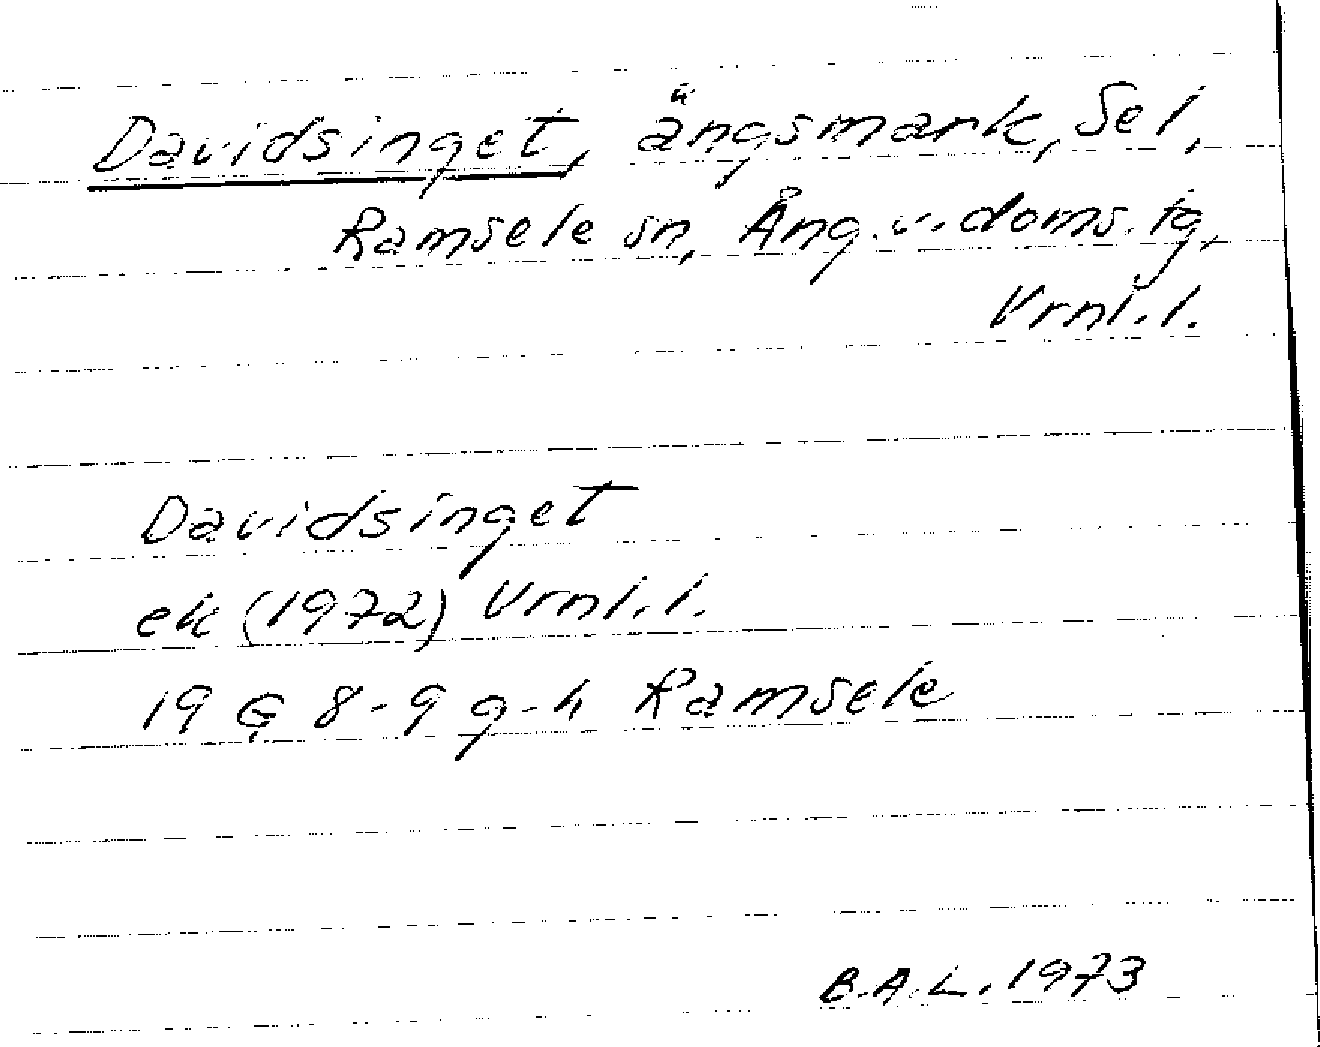 Davidsinget, ängsmark, Sel,
Ramsele sn, Ång.v. doms. tg,
Vrnl.l.
Davidsinget
ek (1972) Vrnl.l.
19 G 8-9 g-h Ramsele
B.A.L. 1973